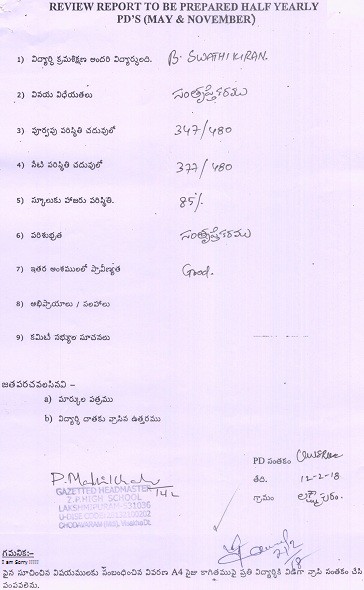 REVIEW REPORT TO BE PREPARED HALF YEARLY
PD'S (MAY & NOVEMBER)
1) విద్యార్థి క్రమశిక్షణ అందరి విద్యార్థులది. B. SWATHI KIRAN.
2) వినయ విధేయతలు సంతృప్తికరము
3) పూర్వపు పరిస్థితి చదువులో 347/480
4) నేటి పరిస్థితి చదువులో 377/480
5) స్కూలుకు హాజరు పరిస్థితి. 85%
6) పరిశుభ్రత సంతృప్తికరము
7) ఇతర అంశములలో ప్రావీణ్యత Good.
8) అభిప్రాయాలు / సలహాలు
9) కమిటీ సభ్యుల సూచనలు
జతపరచవలసినవి -
a) మార్కుల పత్రము
b) విద్యార్థి దాతకు వ్రాసిన ఉత్తరము
PD సంతకం
తేది. 12-2-18
గ్రామం లక్ష్మీపురం.
GAZETTED HEADMASTER
Z.P.HIGH SCHOOL
LAKSHMIPURAM-531036
గమనిక:-
I am Sorry !!!!!
పైన సూచించిన విషయములకు సంబంధించిన వివరణ A4 సైజు కాగితముపై ప్రతి విద్యార్థికి విడిగా వ్రాసి సంతకం చేసి
పంపవలెను.